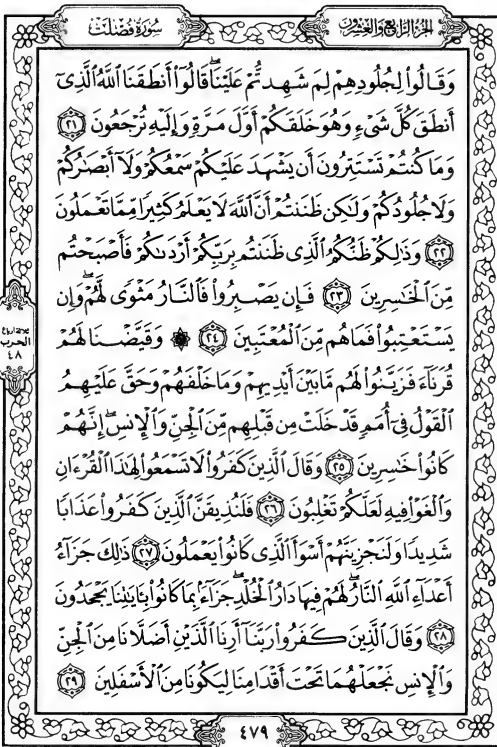 الجزء الرابع والعشرون
سورة فصلت
وَقَالُوا۟ لِجُلُودِهِمْ لِمَ شَهِدتُّمْ عَلَيْنَا ۖ قَالُوٓا۟ أَنطَقَنَا ٱللَّهُ ٱلَّذِىٓ
أَنطَقَ كُلَّ شَىْءٍ وَهُوَ خَلَقَكُمْ أَوَّلَ مَرَّةٍ وَإِلَيْهِ تُرْجَعُونَ ٢١
وَمَا كُنتُمْ تَسْتَتِرُونَ أَن يَشْهَدَ عَلَيْكُمْ سَمْعُكُمْ وَلَآ أَبْصَٰرُكُمْ
وَلَا جُلُودُكُمْ وَلَٰكِن ظَنَنتُمْ أَنَّ ٱللَّهَ لَا يَعْلَمُ كَثِيرًا مِّمَّا تَعْمَلُونَ
٢٢ وَذَٰلِكُمْ ظَنُّكُمُ ٱلَّذِى ظَنَنتُم بِرَبِّكُمْ أَرْدَىٰكُمْ فَأَصْبَحْتُم
مِّنَ ٱلْخَٰسِرِينَ ٢٣ فَإِن يَصْبِرُوا۟ فَٱلنَّارُ مَثْوًى لَّهُمْ ۖ وَإِن
يَسْتَعْتِبُوا۟ فَمَا هُم مِّنَ ٱلْمُعْتَبِينَ ٢٤ ۞ وَقَيَّضْنَا لَهُمْ
قُرَنَآءَ فَزَيَّنُوا۟ لَهُم مَّا بَيْنَ أَيْدِيهِمْ وَمَا خَلْفَهُمْ وَحَقَّ عَلَيْهِمُ
ٱلْقَوْلُ فِىٓ أُمَمٍ قَدْ خَلَتْ مِن قَبْلِهِم مِّنَ ٱلْجِنِّ وَٱلْإِنسِ ۖ إِنَّهُمْ
كَانُوا۟ خَٰسِرِينَ ٢٥ وَقَالَ ٱلَّذِينَ كَفَرُوا۟ لَا تَسْمَعُوا۟ لِهَٰذَا ٱلْقُرْءَانِ
وَٱلْغَوْا۟ فِيهِ لَعَلَّكُمْ تَغْلِبُونَ ٢٦ فَلَنُذِيقَنَّ ٱلَّذِينَ كَفَرُوا۟ عَذَابًا
شَدِيدًا وَلَنَجْزِيَنَّهُمْ أَسْوَأَ ٱلَّذِى كَانُوا۟ يَعْمَلُونَ ٢٧ ذَٰلِكَ جَزَآءُ
أَعْدَآءِ ٱللَّهِ ٱلنَّارُ ۖ لَهُمْ فِيهَا دَارُ ٱلْخُلْدِ ۖ جَزَآءًۢ بِمَا كَانُوا۟ بِـَٔايَٰتِنَا يَجْحَدُونَ
٢٨ وَقَالَ ٱلَّذِينَ كَفَرُوا۟ رَبَّنَآ أَرِنَا ٱلَّذَيْنِ أَضَلَّانَا مِنَ ٱلْجِنِّ
وَٱلْإِنسِ نَجْعَلْهُمَا تَحْتَ أَقْدَامِنَا لِيَكُونَا مِنَ ٱلْأَسْفَلِينَ ٢٩
ثلاثة ارباع
الحزب
٤٨
٤٧٩